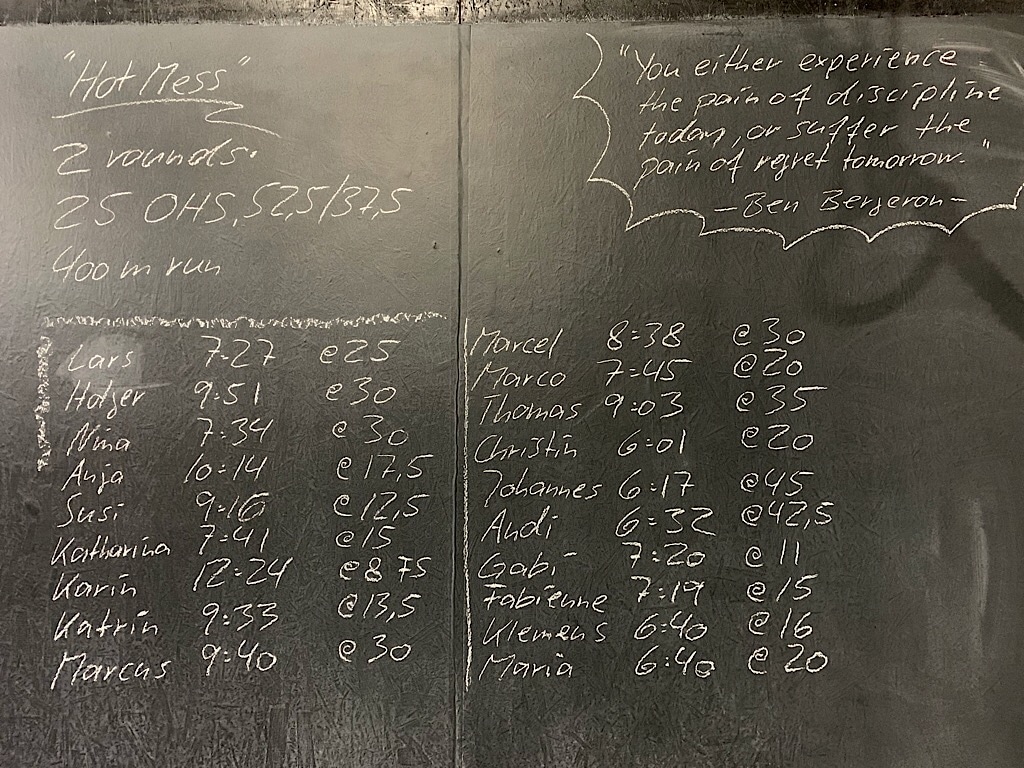 "Hot Mess"
2 rounds:
25 OHS, 52,5/37,5
400 m run
"You either experience
the pain of discipline
today, or suffer the
pain of regret tomorrow."
- Ben Bergeron -
Lars 7:27 @25
Holger 9:51 @30
Nina 7:34 @30
Anja 10:14 @17,5
Susi 9:16 @12,5
Katharina 7:41 @15
Karin 12:24 @8 75
Katrin 9:33 @13,5
Marcus 9:40 @30
Marcel 8:38 @30
Marco 7:45 @20
Thomas 9:03 @35
Christin 6:01 @20
Johannes 6:17 @45
Andi 6:32 @42,5
Gabi 7:20 @11
Fabienne 7:19 @15
Klemens 6:40 @16
Maria 6:40 @20